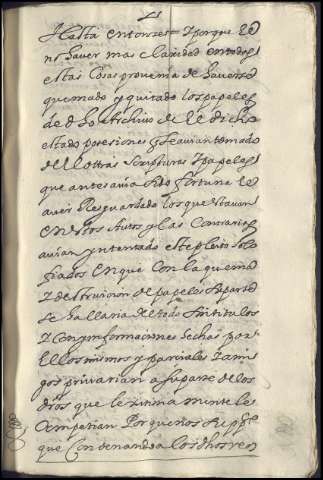 Hasta entonzes = y porque el
no haver mas claridad en todas
estas Cosas provenia de haverse
quemado y quitado los papeles
de dho Archivo de el dicho
estado posesiones que avian tomado
de ellos otras Scripturas y papeles
que antes avia sido fortuna el
aver Resguardado los que estavan
en estos Autos y las Contrarias
avian yntentado este pleito solo
fiados en que Con la quema
y destruicion de papeles su parte
se hallaria de todo sin titulos
y Con ynformaciones hechas por
ellos mismos y parciales y ami
gos privarian a su parte de los
dros que lexitimamente le
Competian Por que nos supco
que Condenando a los dhos reos